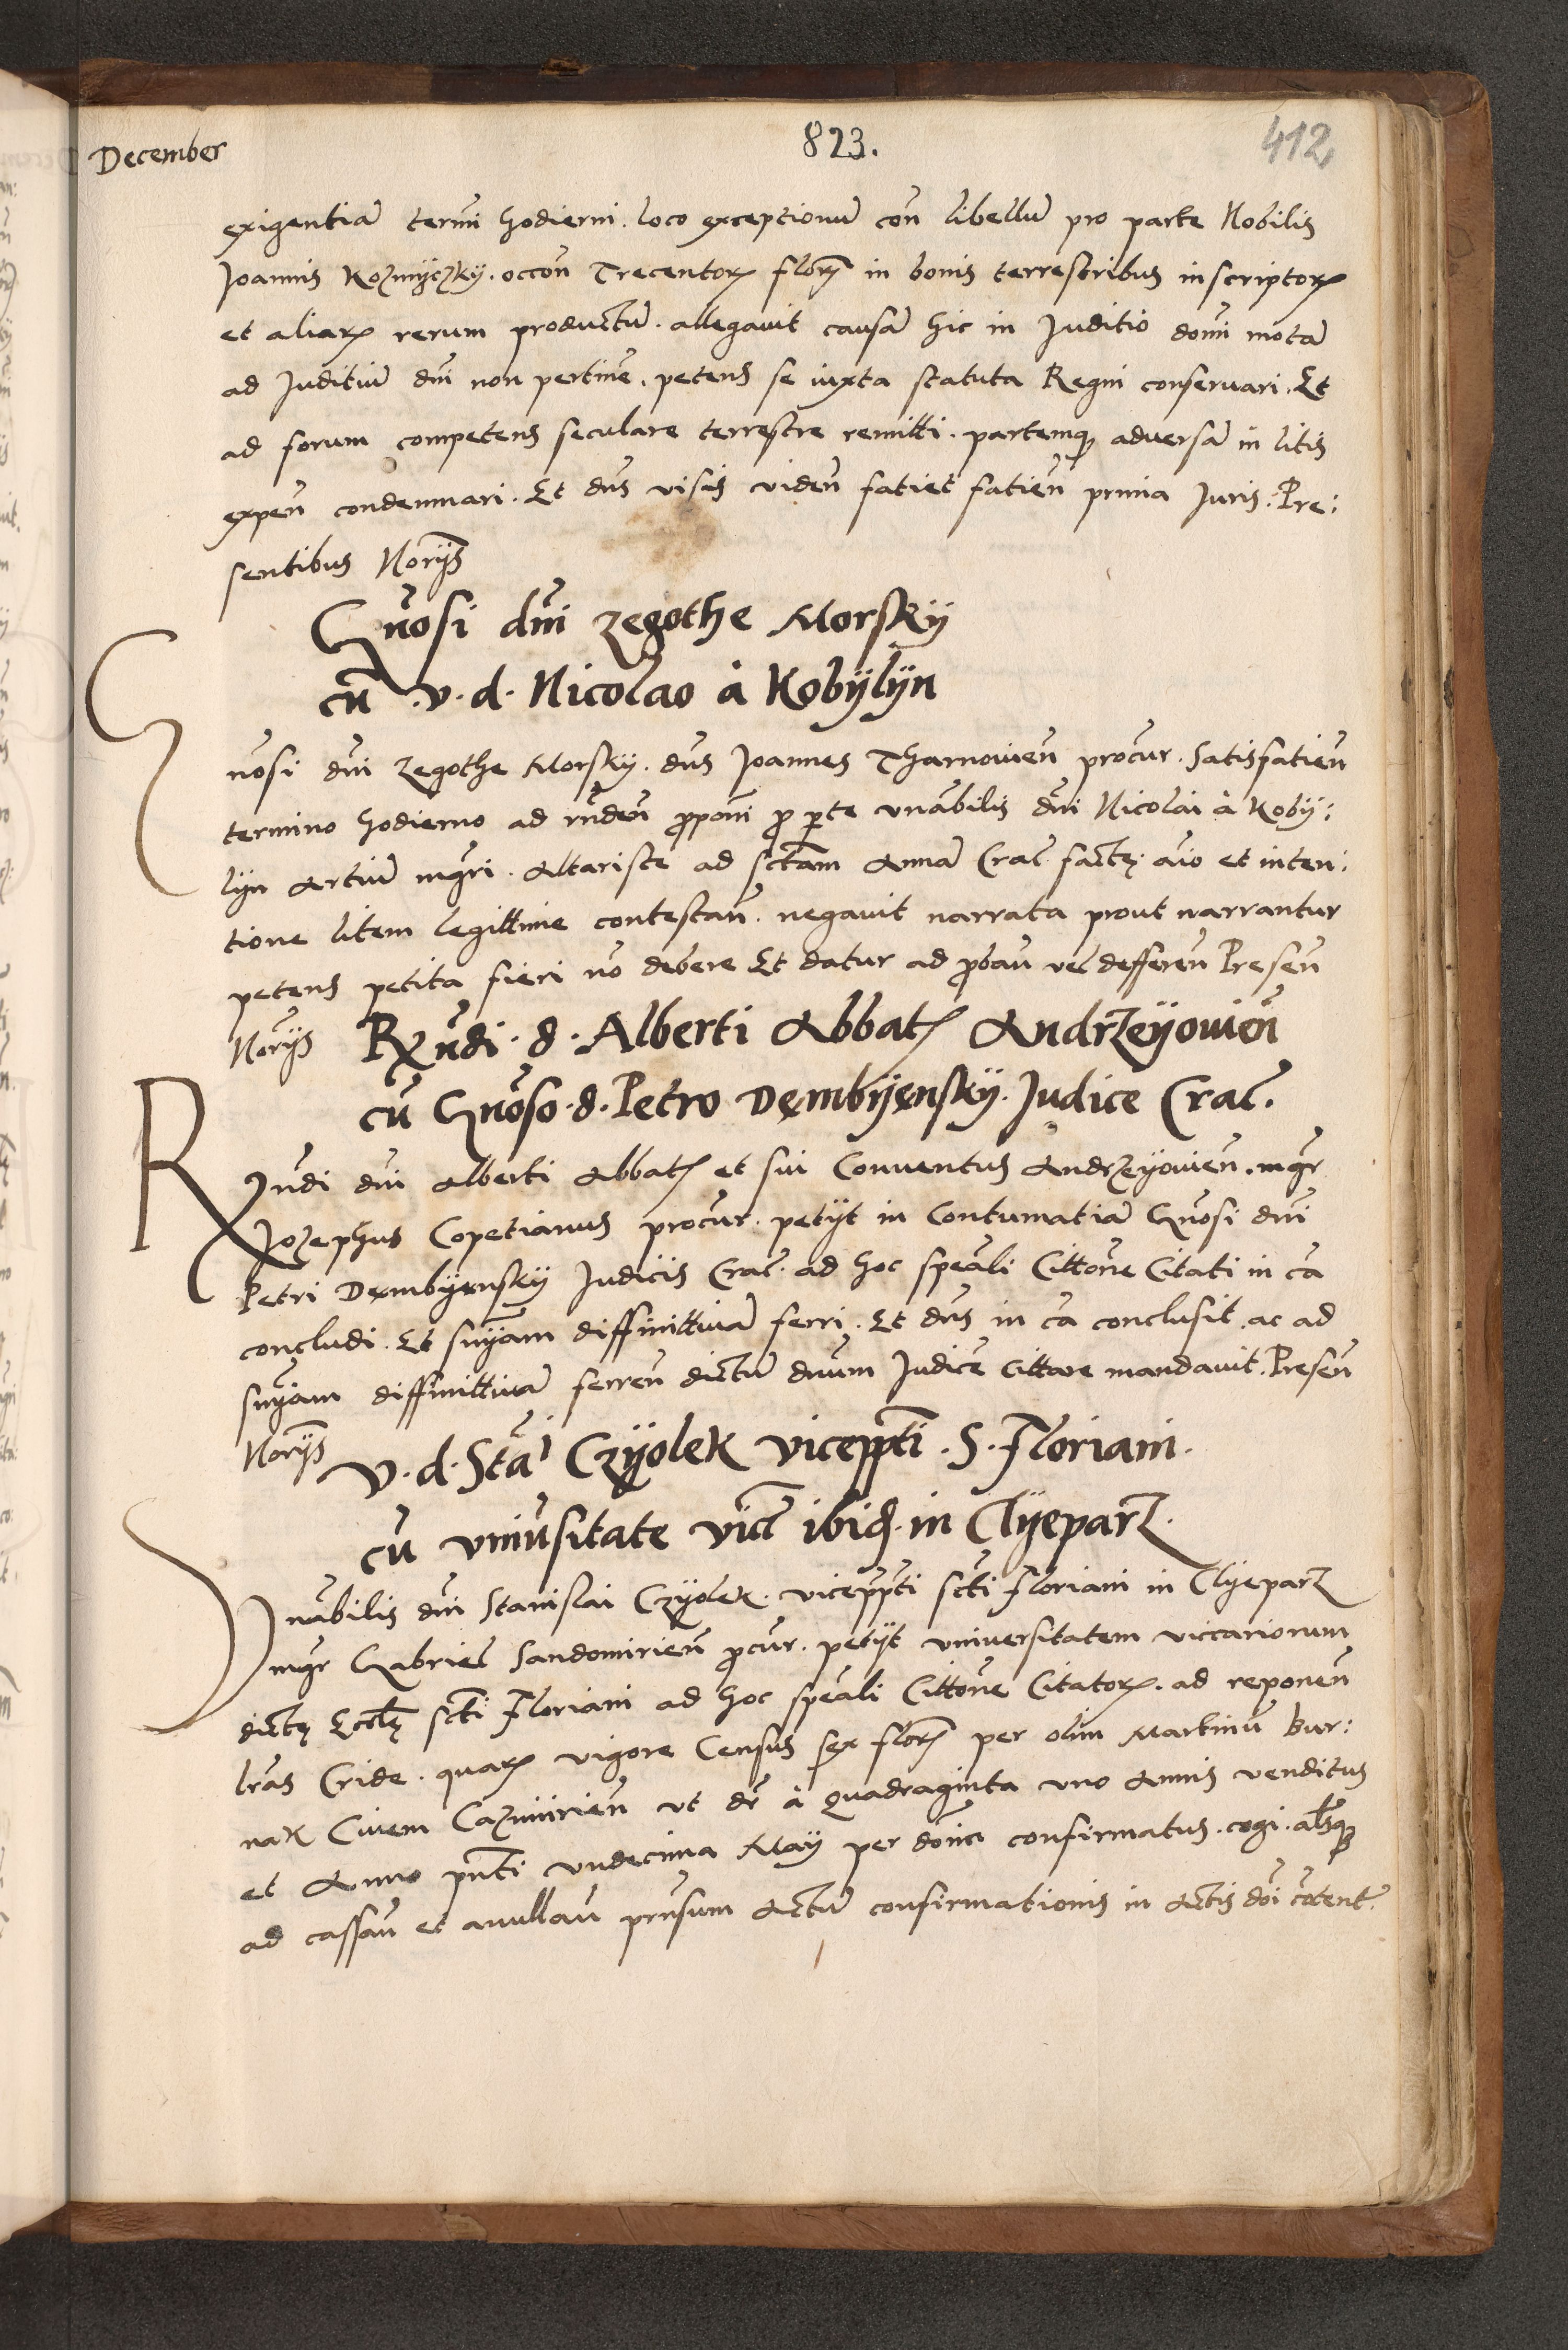 December
823.
412
exigentiā termī hodierni. loco exceptionū con̄ libellū pro parte Nobilis
Joannis Kozmyczky. occon̄ Trecentorꝝ florꝝ in bonis terrestribus inscriptorꝝ
et aliarꝝ rerum productū. allegavit causā hic in Juditio domī motā
ad Juditiū dn̄i non pertinē. petens se iuxta statuta Regni conservari. Et
ad forum competens seculare terrestre remitti. partemqꝫ adversā in litis
expen̄ condemnari. Et dn̄s visis viden̄ fatiet fatien̄ prmia Juris. Pre:
sentibus Norijs
Gn̄osi dn̄i Zegothe Morsky
cū v. d. Nicolao à Kobylyn
Gn̄osi dn̄i Zegothe Morsky. dn̄s Joannes Tharnovien̄ procur. Satisfatien̄
termino hodierno ad rn̄den̄ ꝓponi ꝓ ꝑte vn̄abilis dn̄i Nicolai à Koby:
lyn Artiū mgr̄i. Altariste ad sctam Annā Crac̄ factę ac̄io et inten:
tione litem legittime contestan̄. negavit narrata prout narrantur
petens petita fieri nō debere Et datur ad ꝓban̄ vel defferen̄ Presen̄
Norijs
Rx̄ndi. d. Alberti Abbatꝭ Andrzeyovien̄
cū Gn̄oso. d. Petro Dęmbyęnsky. Judice Crac̄.
Rx̄ndi dn̄i Alberti Abbatꝭ et sui Conventus Andrzeyovien̄. mgr̄
Jozephus Copetianus procur. petijt in Contumatiā Gn̄osi dn̄i
Petri Dęmbyęnsky Judicis Crac̄. ad hoc spēali Citton̄e Citati in cā
concludi. Et sn̄yam diffinittivā ferri. Et dn̄s in cā conclusit. ac ad
sn̄yam diffinittivā ferren̄ dictū dn̄um Judicē cittare mandavit. Presen̄
Norijs
V. d. Stā Czyolek viceppti. S. Floriani.
cū univ̄sitate vicc̄ ibid. in Clyeparz.
Vn̄abilis dn̄i Stanislai Czyolek. viceppti scti Floriani in Clyeparz
mgr̄ Gabriel Sandomirien̄ ꝓcur. petijt universitatem viccariorum
dictę Eccl̄ę scti Floriani ad hoc spēali Citton̄e Citatorꝝ. ad reponen̄
lr̄as Cride. quarꝝ vigore Census sex florꝝ per olim Martinū bur:
nak Civem Cazmirien̄ ut dr̄ à quadraginta uno Annis venditus
et Anno pn̄ti undecima Maÿ per dōīm confirmatus. cogi. al̄sqꝫ
ad cassan̄ et anullan̄ prn̄sum Actū confirmationis in Actis dōī cōtent.